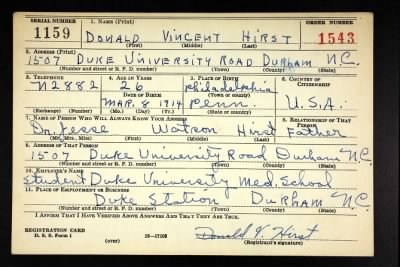 SERIAL NUMBER 1. NAME (Print) ORDER NUMBER
1159 DONALD VINCENT HIRST 1543
(First) (Middle) (Last)
2. ADDRESS (Print)
1507 DUKE UNIVERSITY ROAD DURHAM N.C.
(Number and street or R. F. D. number) (Town) (County) (State)
3. TELEPHONE 4. AGE IN YEARS 5. PLACE OF BIRTH 6. COUNTRY OF CITIZENSHIP
N2882 26 Philadelphia
DATE OF BIRTH (Town or county)
MAR. 8 1914 Penn. U.S.A.
(Exchange) (Number) (Mo.) (Day) (Yr.) (State or country)
7. NAME OF PERSON WHO WILL ALWAYS KNOW YOUR ADDRESS 8. RELATIONSHIP OF THAT PERSON
Dr. Jesse Watson Hirst Father
(Mr., Mrs., Miss) (First) (Middle) (Last)
9. ADDRESS OF THAT PERSON
1507 Duke University Road Durham N.C.
(Number and street or R. F. D. number) (Town) (County) (State)
10. EMPLOYER'S NAME
Student Duke University Med. School
11. PLACE OF EMPLOYMENT OR BUSINESS
Duke Station DURHAM N.C.
(Number and street or R. F. D. number) (Town) (County) (State)
I AFFIRM THAT I HAVE VERIFIED ABOVE ANSWERS AND THAT THEY ARE TRUE.
REGISTRATION CARD
D. S. S. Form 1 16—17105 Donald V. Hirst
(over) (Registrant's signature)